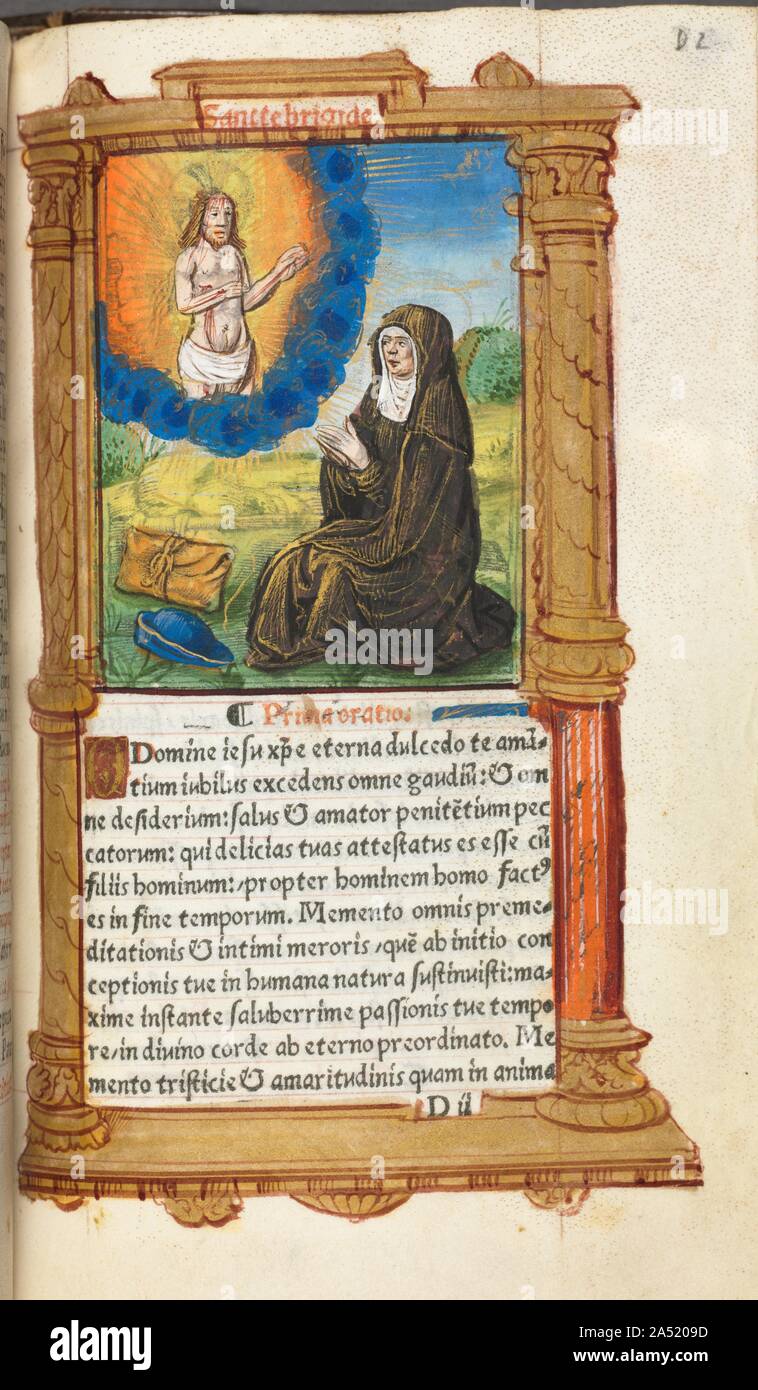 D 2
Sancte brigide
¶ Prima oratio.
O Domine iesu xp̃e eterna dulcedo te amā-
tium iubilus excedens omne gaudiū: & om
ne desiderium: salus & amator penitētium pec
catorum: qui delicias tuas attestatus es esse cū
filiis hominum: propter hominem homo factꝰ
es in fine temporum. Memento omnis preme-
ditationis & intimi meroris, quē ab initio con
ceptionis tue in humana natura sustinuisti: ma-
xime instante saluberrime passionis tue tempo
re, in divino corde ab eterno preordinato. Me
mento tristicie & amaritudinis quam in anima
D ii
alamy
alamy
alamy
a
a
a
a
alamy
Image ID: 2A5209D
www.alamy.com